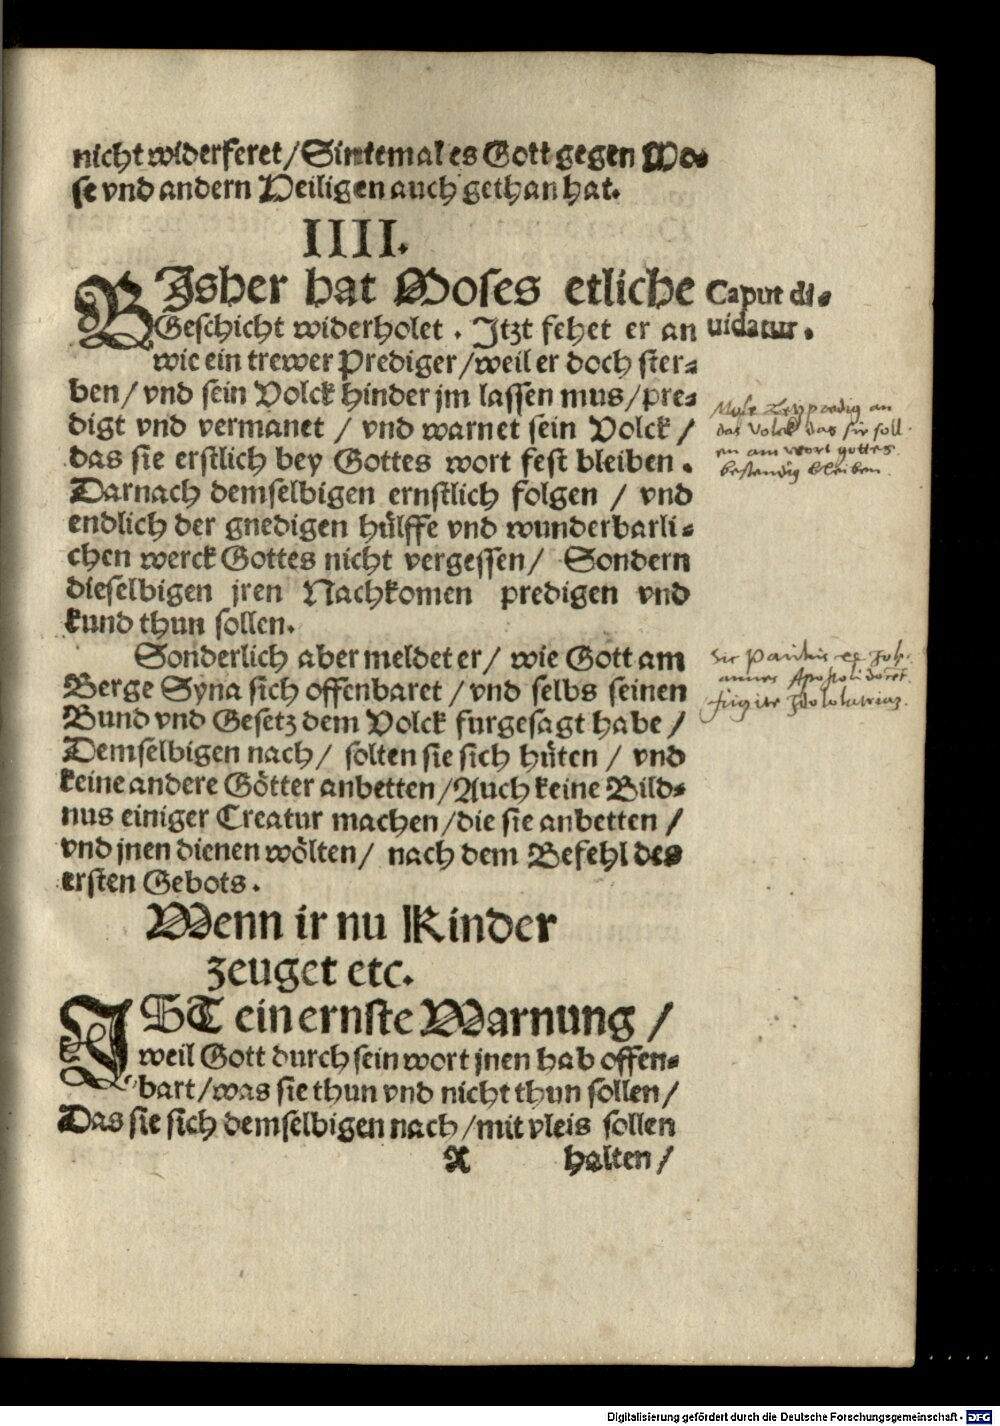 nicht widerferet / Sintemal es Gott gegen Mo⸗
se vnd andern Heiligen auch gethan hat.
IIII.
BIsher hat Moses etliche
Geschicht widerholet. Jtzt fehet er an
wie ein trewer Prediger / weil er doch ster⸗
ben / vnd sein Volck hinder jm lassen mus / pre⸗
digt vnd vermanet / vnd warnet sein Volck /
das sie erstlich bey Gottes wort fest bleiben.
Darnach demselbigen ernstlich folgen / vnd
endlich der gnedigen hülffe vnd wunderbarli⸗
chen werck Gottes nicht vergessen / Sondern
dieselbigen jren Nachkomen predigen vnd
kund thun sollen.
Caput di⸗
uidatur.
das Volck das sie soll
en am wort gottes
bestendig bleiben.
Sonderlich aber meldet er / wie Gott am
Berge Syna sich offenbaret / vnd selbs seinen
Bund vnd Gesetz dem Volck furgesagt habe /
Demselbigen nach / solten sie sich hüten / vnd
keine andere Götter anbetten / Auch keine Bild⸗
nus einiger Creatur machen / die sie anbetten /
vnd jnen dienen wölten / nach dem Befehl des
ersten Gebots.
Sic Paulus et Joh⸗
annes Apostoli docent
fugite Idololatriam.
Wenn ir nu Kinder
zeuget etc.
JST ein ernste Warnung /
weil Gott durch sein wort jnen hab offen⸗
bart / was sie thun vnd nicht thun sollen /
Das sie sich demselbigen nach / mit vleis sollen
A halten /
Digitalisierung gefördert durch die Deutsche Forschungsgemeinschaft - DFG